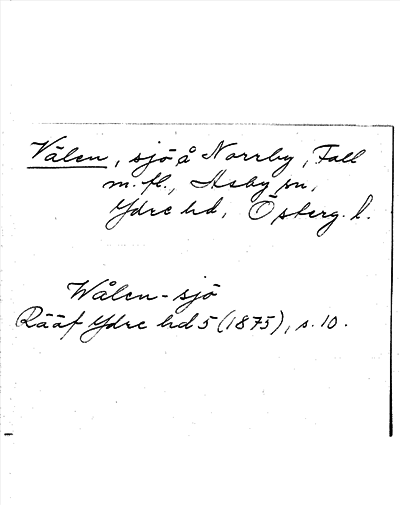 Vålen, sjö å Norrby, Fall
m. fl., Asby sn,
Ydre hd, Österg. l.
Wålen-sjö
Rääf Ydre hd 5 (1875), s. 10.